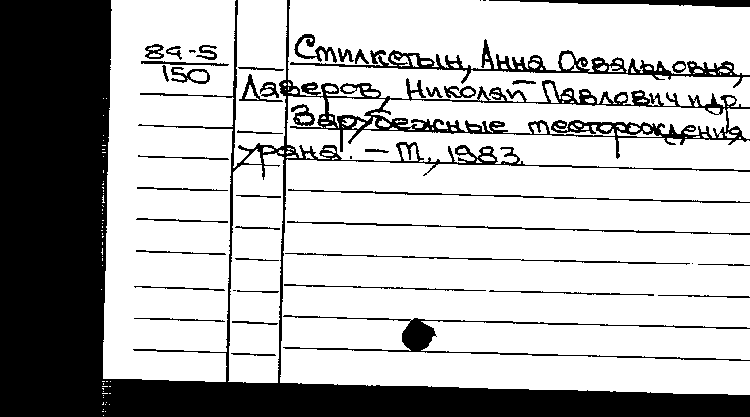 84-5
150
Стилкстын, Анна Освальдовна,
Лаверов, Николай Павлович и др.
Зарубежные месторождения
урана. – М., 1983.